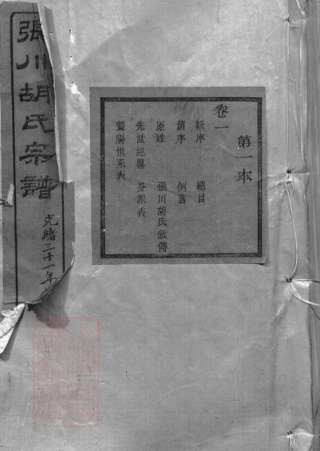 張川胡氏宗譜
光緒三十一年
第一本
卷一
新序 總目
舊序 例言
原姓 張川胡氏叙傳
先世記畧 分派表
暨陽世系表